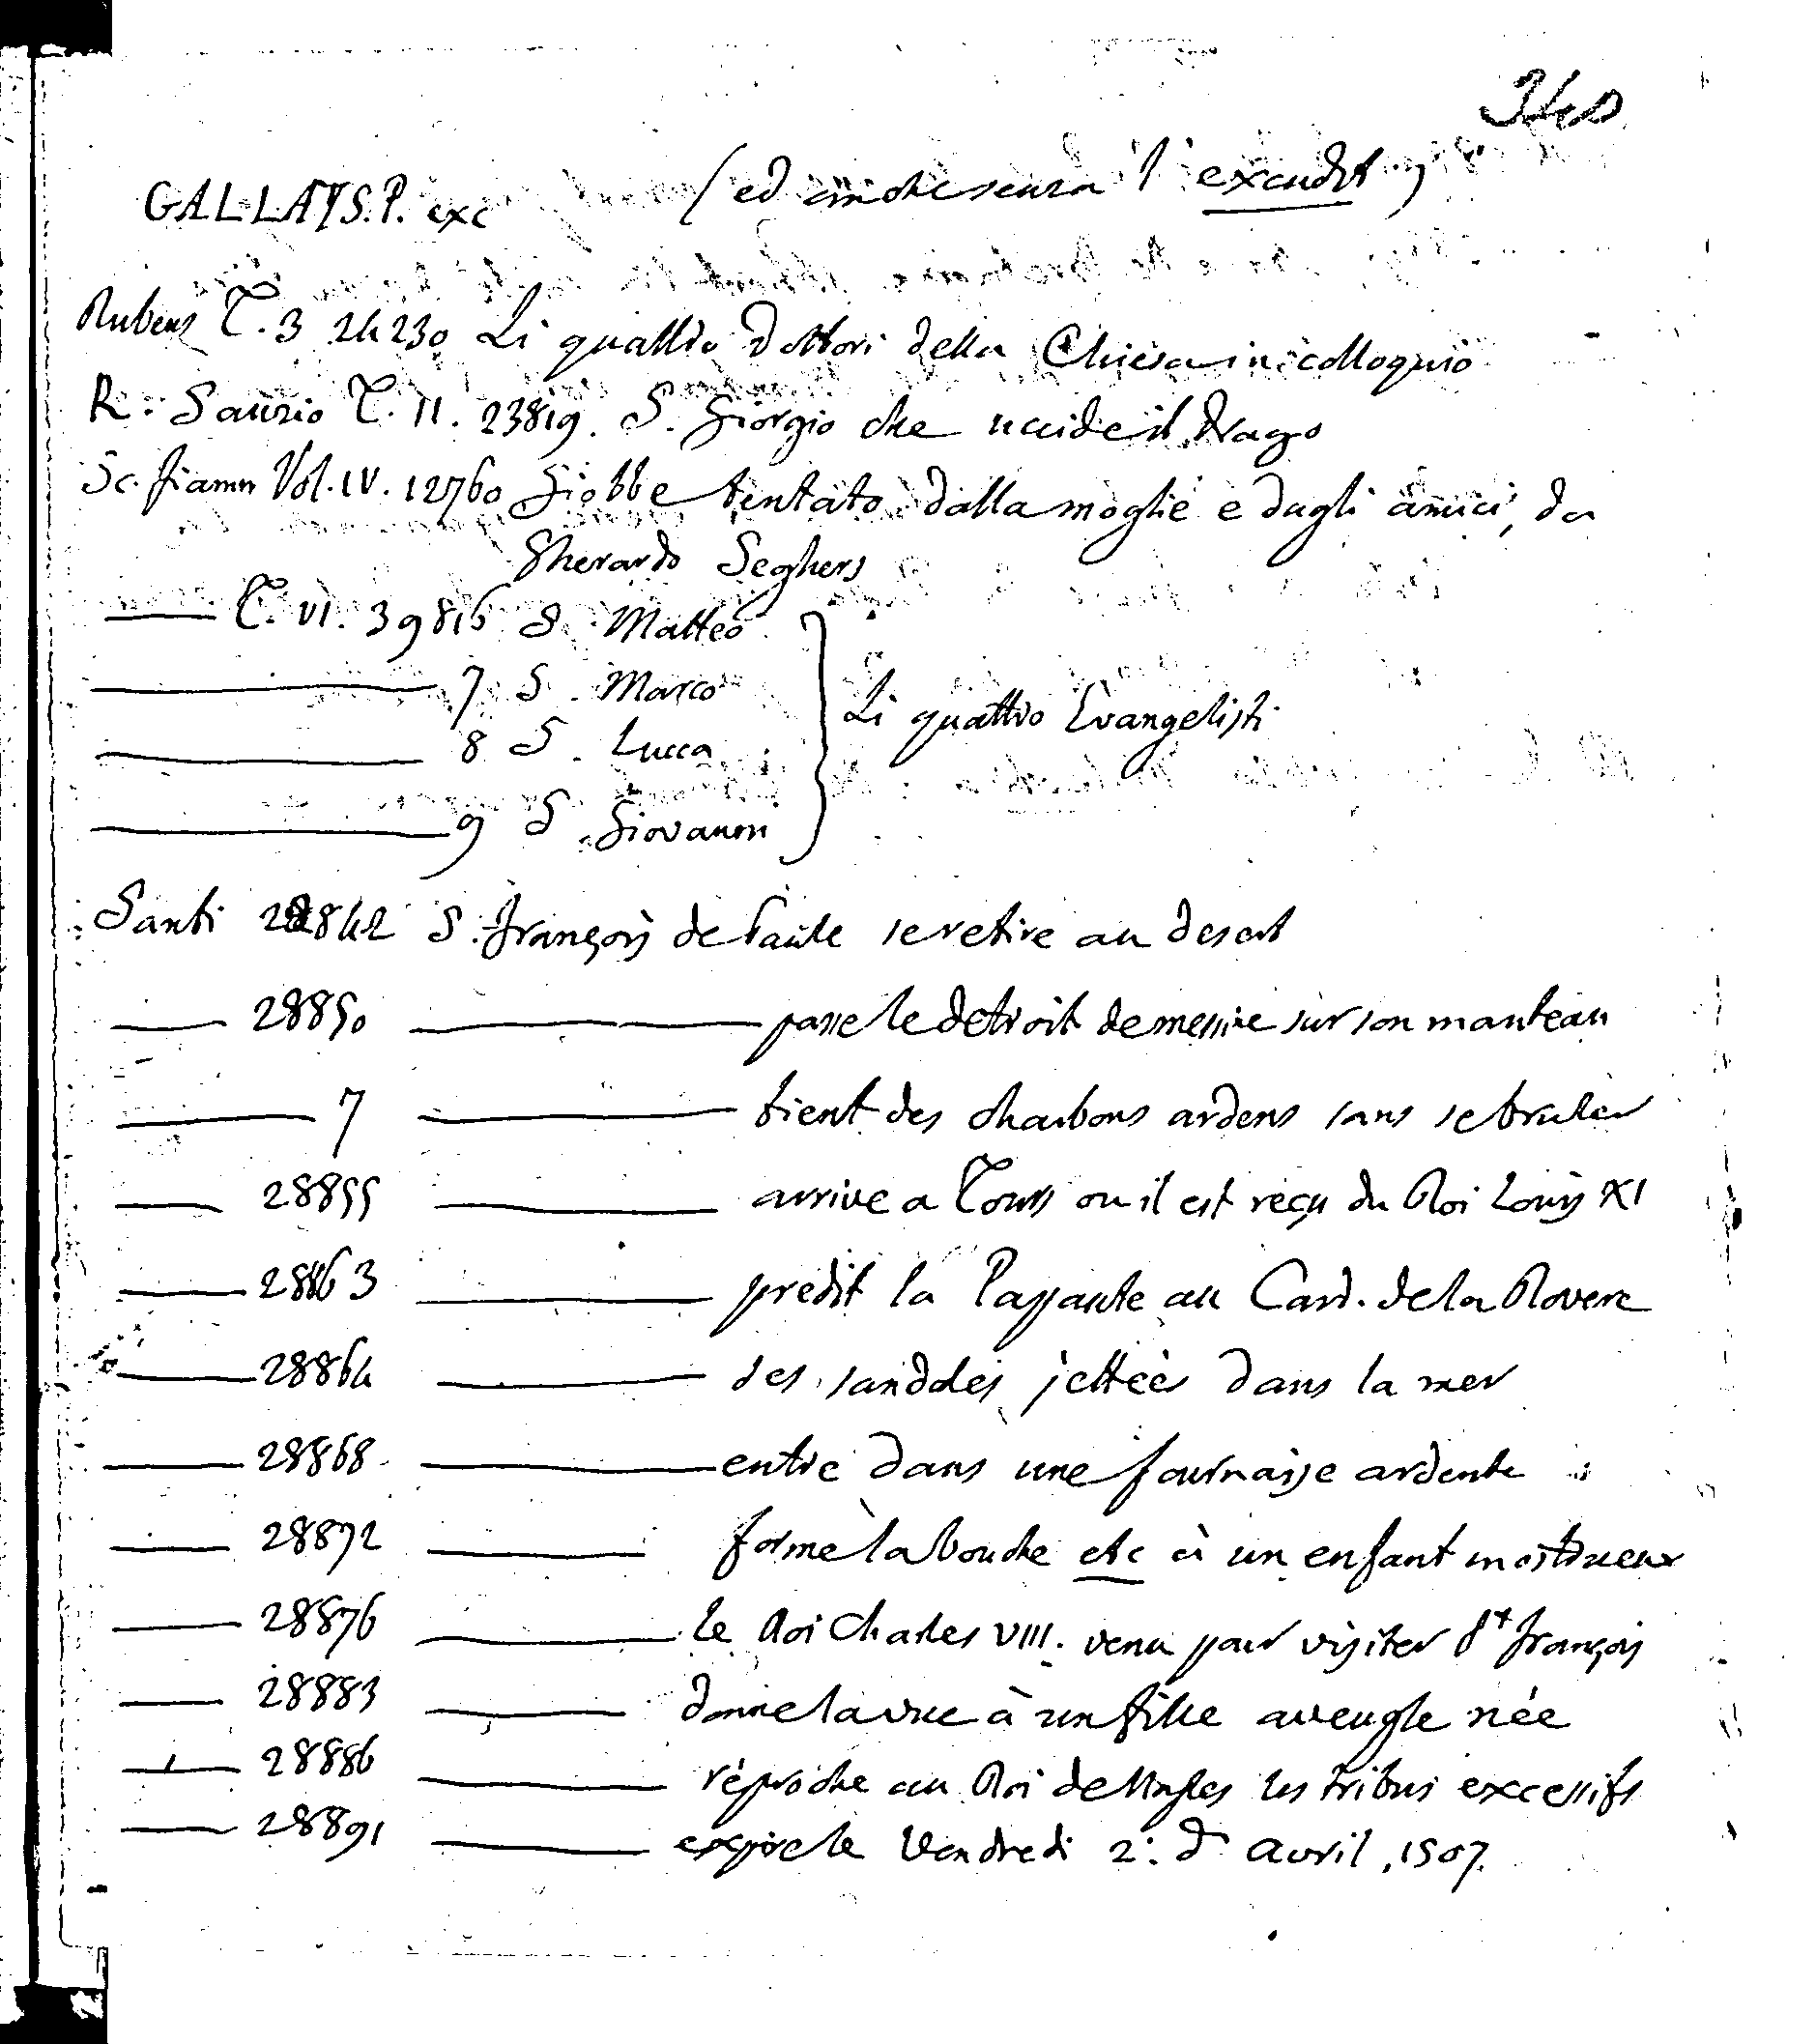 340
GALLAYS. P. exc (ed anche senza l'excudit)
Rubens T. 3 24230 Li quattro dottori della Chiesa in colloquio
R: Sanzio T. 11. 23819. S. Giorgio che uccide il Drago
Sc. fiamm Vol. IV. 12760 Giobbe tentato dalla moglie e dagli amici, da
Gherardo Seghers
—— T. VI. 39816 S. Matteo
—— 7 S. Marco
Li quattro Evangelisti
—— 8 S. Lucca
—— 9 S. Giovanni
Santi 28842 S. François de Paule se retire au desert
—— 28850 —— passe le detroit de messine sur son manteau
—— 7 —— tient des charbons ardens sans se bruler
—— 28855 —— arrive a Tours ou il est reçu du Roi Louis XI
—— 28863 —— predit la Papaute au Card. de la Rovere
—— 28864 —— ses sandales jettées dans la mer
—— 28868 —— entre dans une fournaise ardente
—— 28872 —— forme la bouche etc à un enfant mostrueux
—— 28876 —— le Roi Charles VIII. venu pour visiter St François
—— 28883 —— donne la vue à un fille aveugle née
—— 28886 —— réproche au Roi de Naples les tribus excessifs
—— 28891 —— expire le Vendredi 2: d'Avril, 1507.